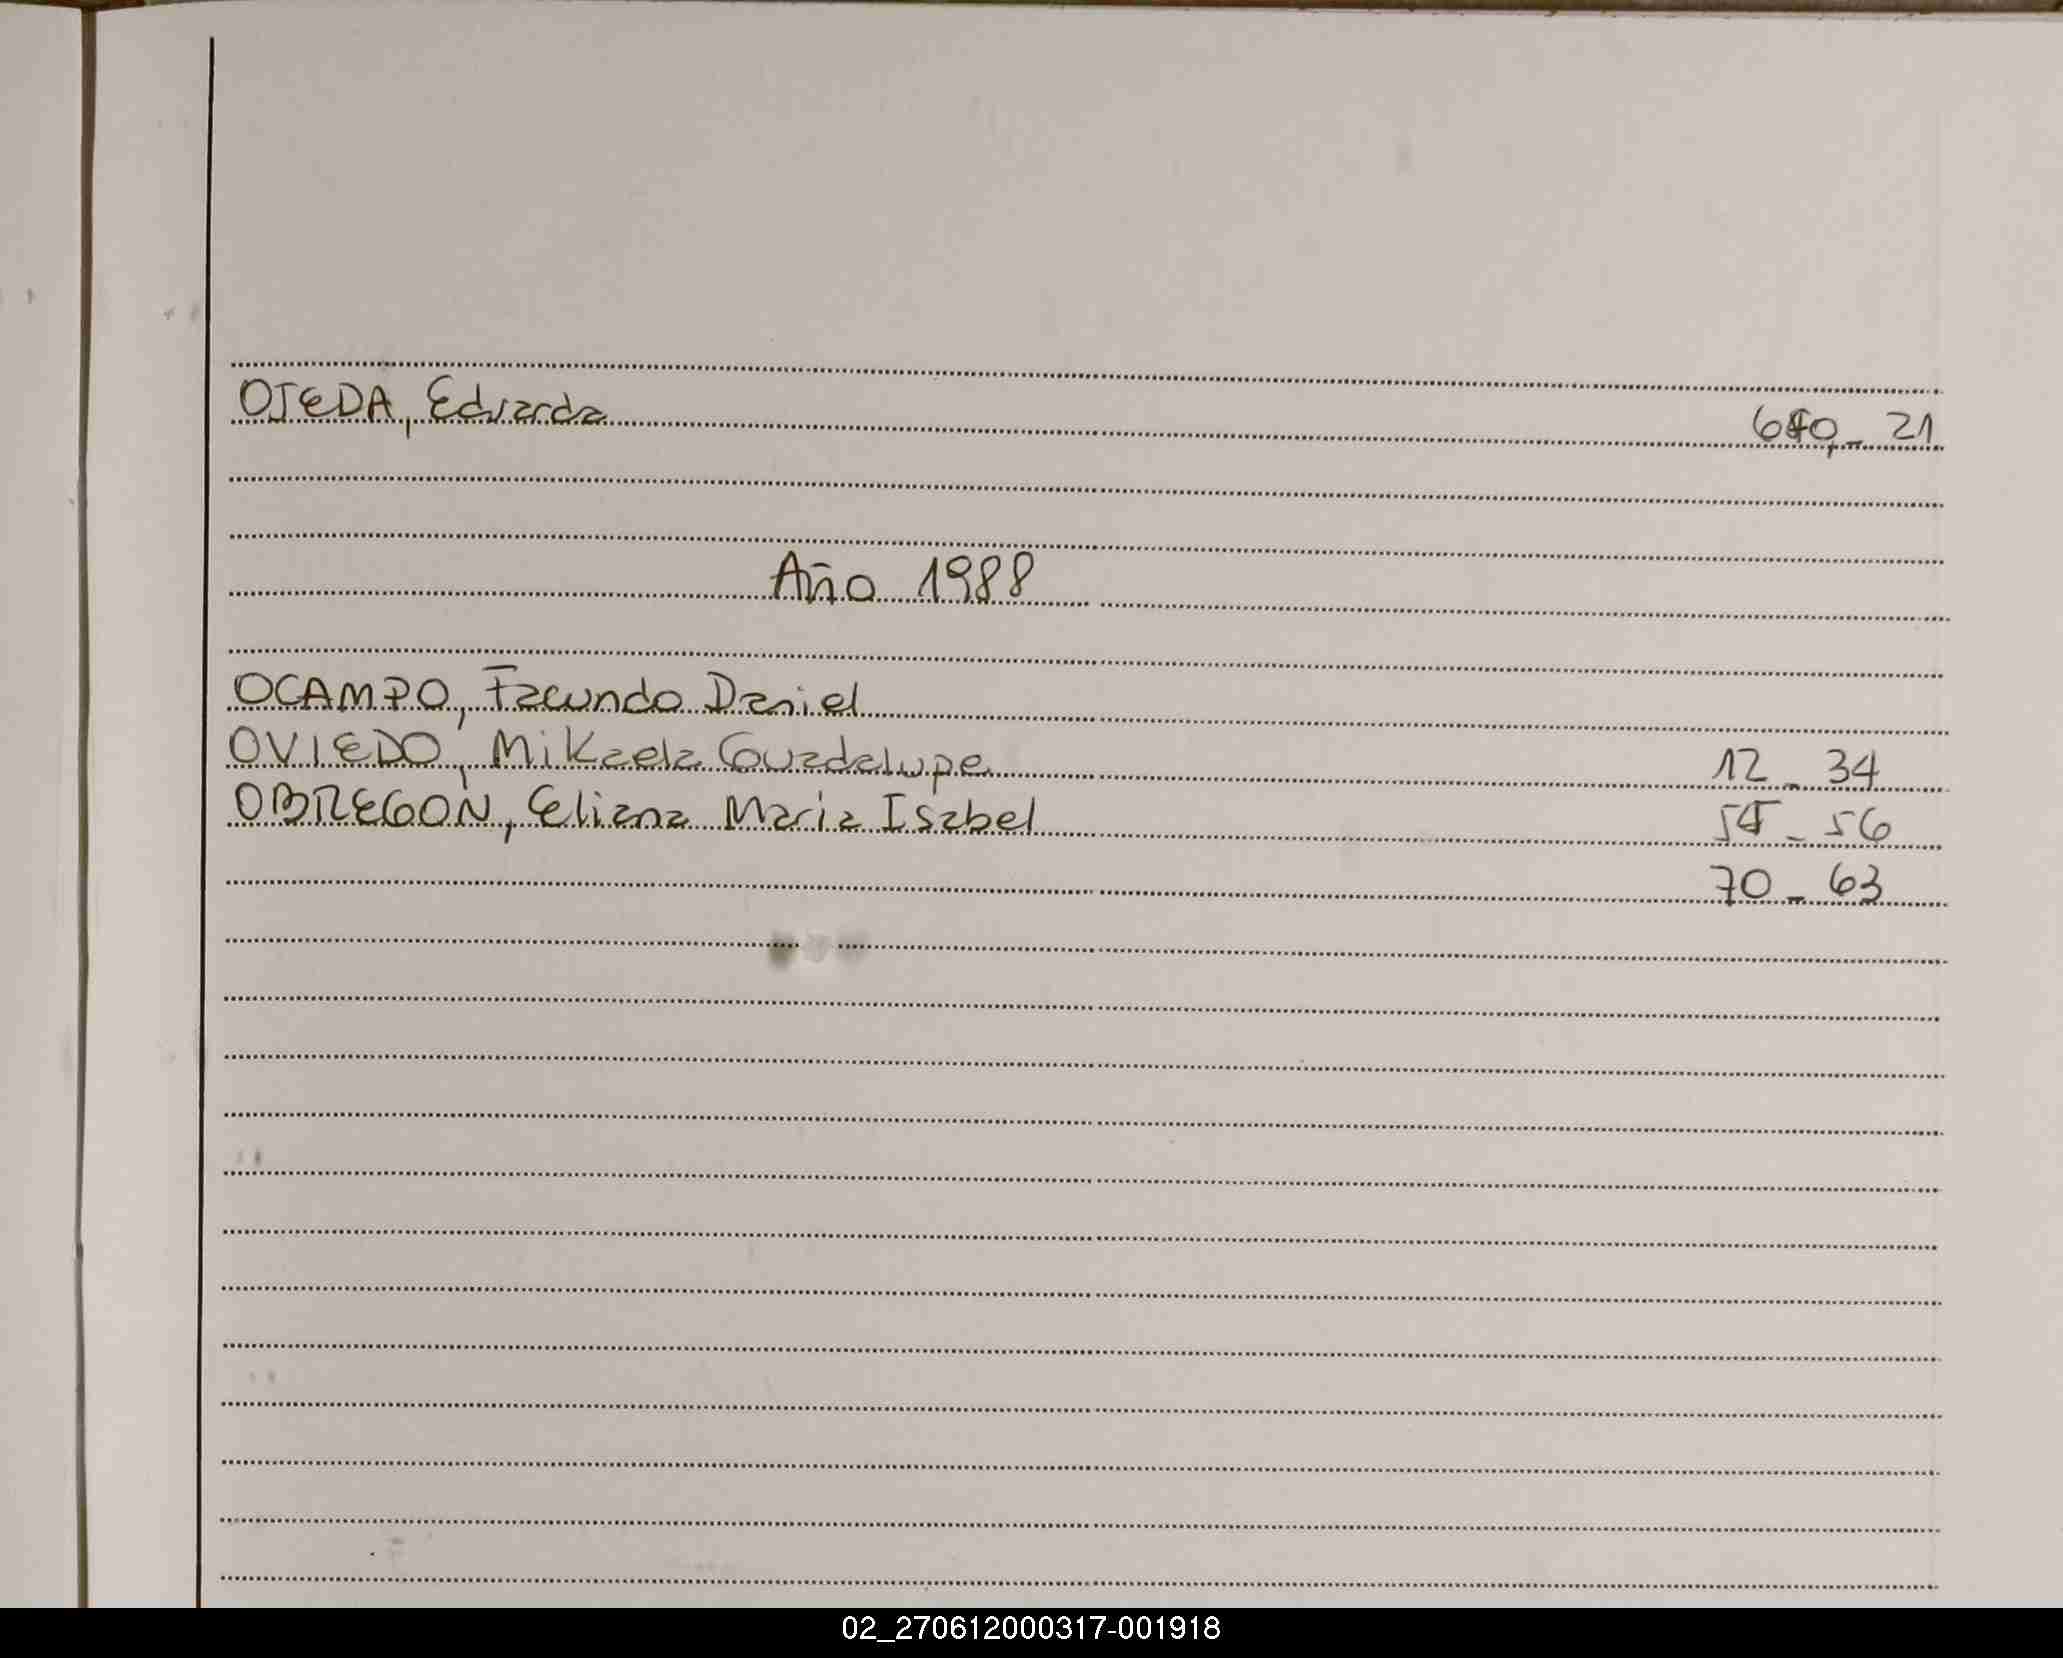 OJEDA, Eduarda 21
Año 1988
OCAMPO, Facundo Daniel
OVIEDO, Mikaela Guadalupe 12 - 34
OBREGON, Eliana Maria Isabel 54 - 56
70 - 63
02_270612000317-001918